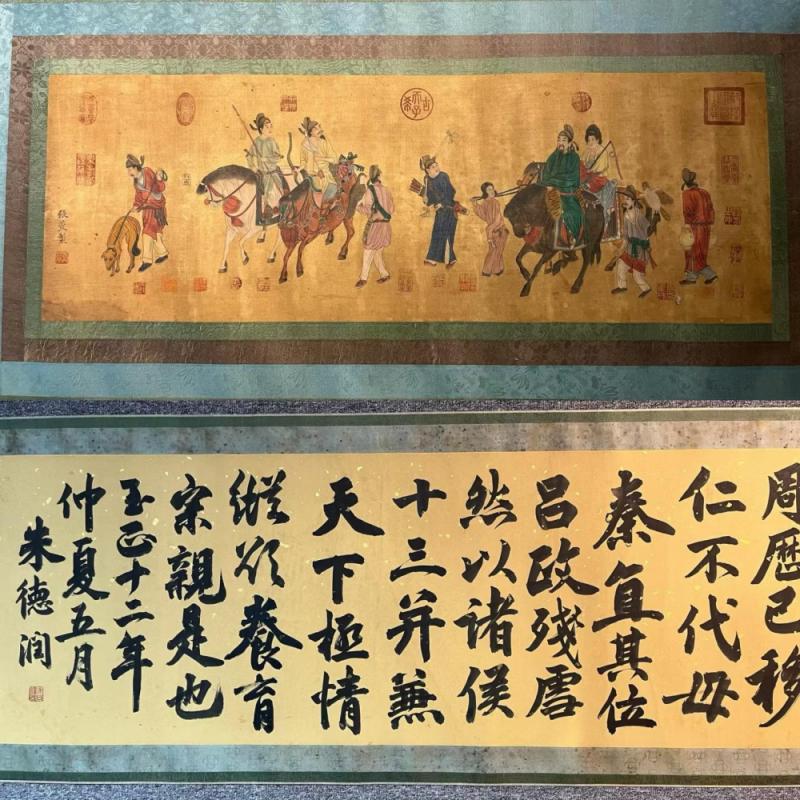 古希天子
張萱製
周歷已移
仁不代母
秦直其位
呂政殘虐
然以諸侯
十三并兼
天下極情
縱欲養育
宗親是也
至正十二年
仲夏五月
朱德潤